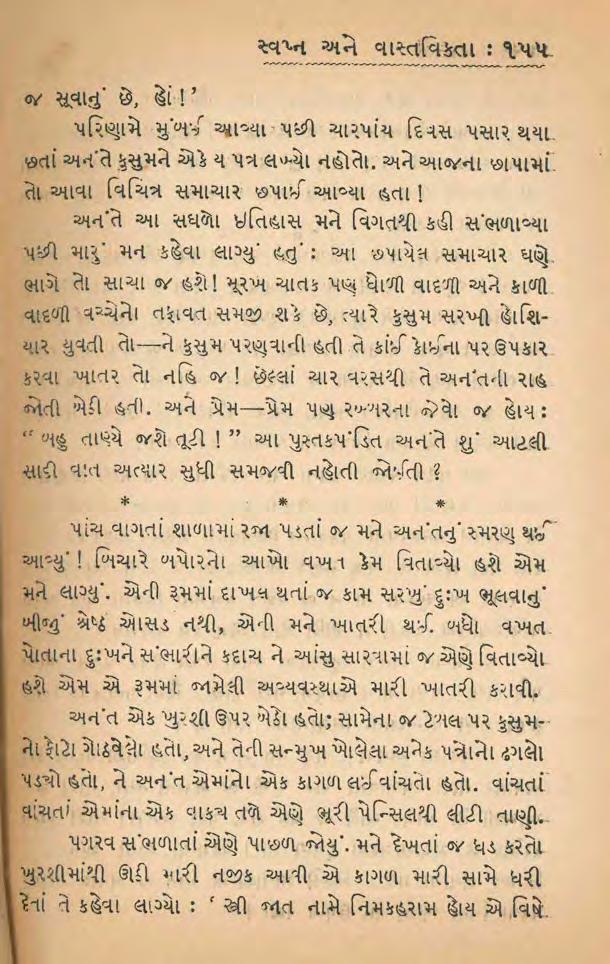 સ્વપ્ન અને વાસ્તવિકતા : ૧૫૫
જ સૂવાનું છે, હોં !’
પરિણામે મુંબઈ આવ્યા પછી ચારપાંચ દિવસ પસાર થયા
છતાં અનંતે કુસુમને એકે ય પત્ર લખ્યો નહોતો. અને આજના છાપામાં
તો આવા વિચિત્ર સમાચાર છપાઈ આવ્યા હતા !
અનંતે આ સઘળો ઇતિહાસ મને વિગતથી કહી સંભળાવ્યા
પછી મારું મન કહેવા લાગ્યું હતું : આ છપાયેલ સમાચાર ઘણે
ભાગે તો સાચા જ હશે! મૂરખ ચાતક પણ ધોળી વાદળી અને કાળી
વાદળી વચ્ચેનો તફાવત સમજી શકે છે, ત્યારે કુસુમ સરખી હોશિ-
યાર યુવતી તો—ને કુસુમ પરણવાની હતી તે કાંઈ કોઈના પર ઉપકાર
કરવા ખાતર તો નહિ જ ! છેલ્લાં ચાર વરસથી તે અનંતની રાહ
જોતી બેઠી હતી. અને પ્રેમ—પ્રેમ પણ રબ્બરના જેવો જ હોય :
“ બહુ તાણ્યે જશે તૂટી ! ” આ પુસ્તકપંડિત અનંતે શું આટલી
સાદી વાત અત્યાર સુધી સમજવી નહોતી જોઈતી ?
* * *
પાંચ વાગતાં શાળામાં રજા પડતાં જ મને અનંતનું સ્મરણ થઈ
આવ્યું ! બિચારે બપોરનો આખો વખત કેમ વિતાવ્યો હશે એમ
મને લાગ્યું. એની રૂમમાં દાખલ થતાં જ કામ સરખું દુઃખ ભૂલવાનું
બીજું શ્રેષ્ઠ ઓસડ નથી, એની મને ખાતરી થઈ. બધો વખત
પોતાના દુઃખને સંભારીને કદાચ ને આંસુ સારવામાં જ એણે વિતાવ્યો
હશે એમ એ રૂમમાં જામેલી અવ્યવસ્થાએ મારી ખાતરી કરાવી.
અનંત એક ખુરશી ઉપર બેઠો હતો; સામેના જ ટેબલ પર કુસુમ-
નો ફોટો ગોઠવેલો હતો, અને તેની સન્મુખ ખોલેલા અનેક પત્રોનો ઢગલો
પડ્યો હતો, ને અનંત એમાંનો એક કાગળ લઈ વાંચતો હતો. વાંચતાં
વાંચતાં એમાંના એક વાક્ય તળે એણે ભૂરી પેન્સિલથી લીટી તાણી.
પગરવ સંભળાતાં એણે પાછળ જોયું. મને દેખતાં જ ધડ કરતો
ખુરશીમાંથી ઊઠી મારી નજીક આવી એ કાગળ મારી સામે ધરી
દેતાં તે કહેવા લાગ્યો : ‘ સ્ત્રી જાત નામે નિમકહરામ હોય એ વિષે